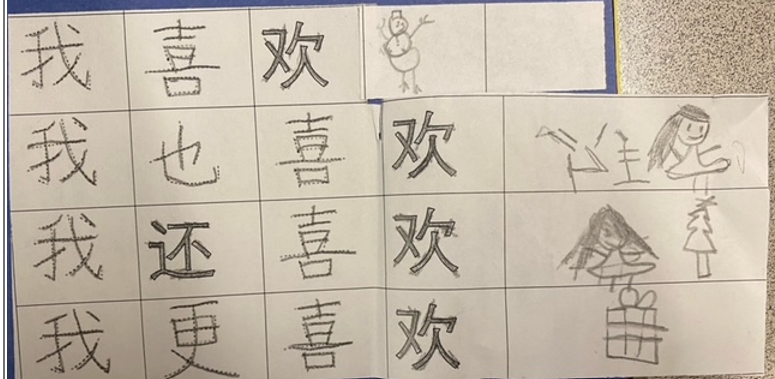 我喜欢
我也喜欢
我还喜欢
我更喜欢